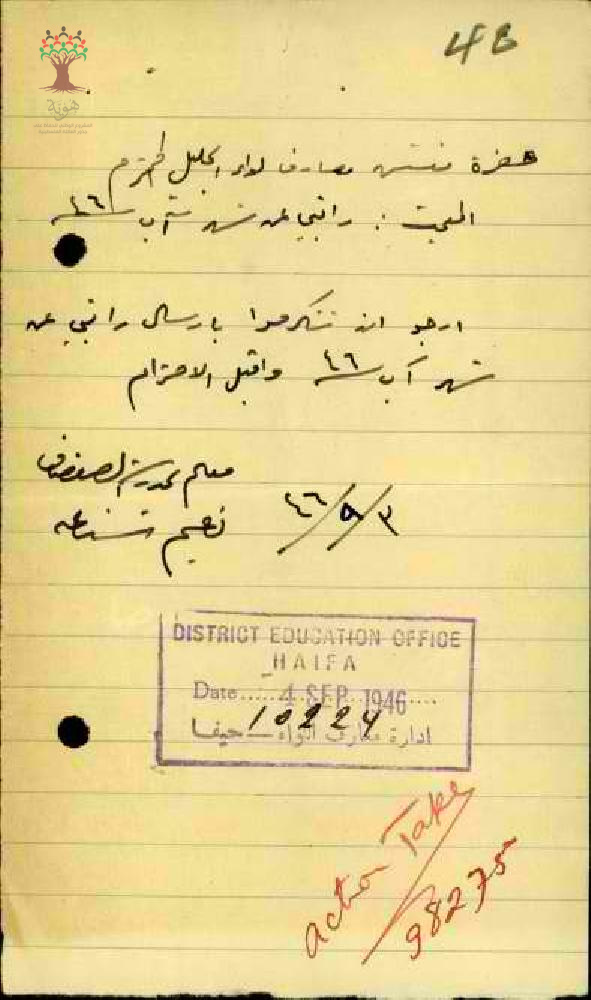 48
هوية
حضرة مفتش معارف لواء الجليل المحترم
المبحث : راتبي عن شهر آب سنة ٤٦
ارجو ان تتكرموا بارسال راتبي عن
شهر آب سنة ٤٦ واقبل الاحترام
معلم مدرسة الصفصاف
٤٦/٩/٣
نعيم
DISTRICT EDUCATION OFFICE
HAIFA
Date 4 SEP 1946
10224
ادارة معارف اللواء - حيفا
action Take
98275